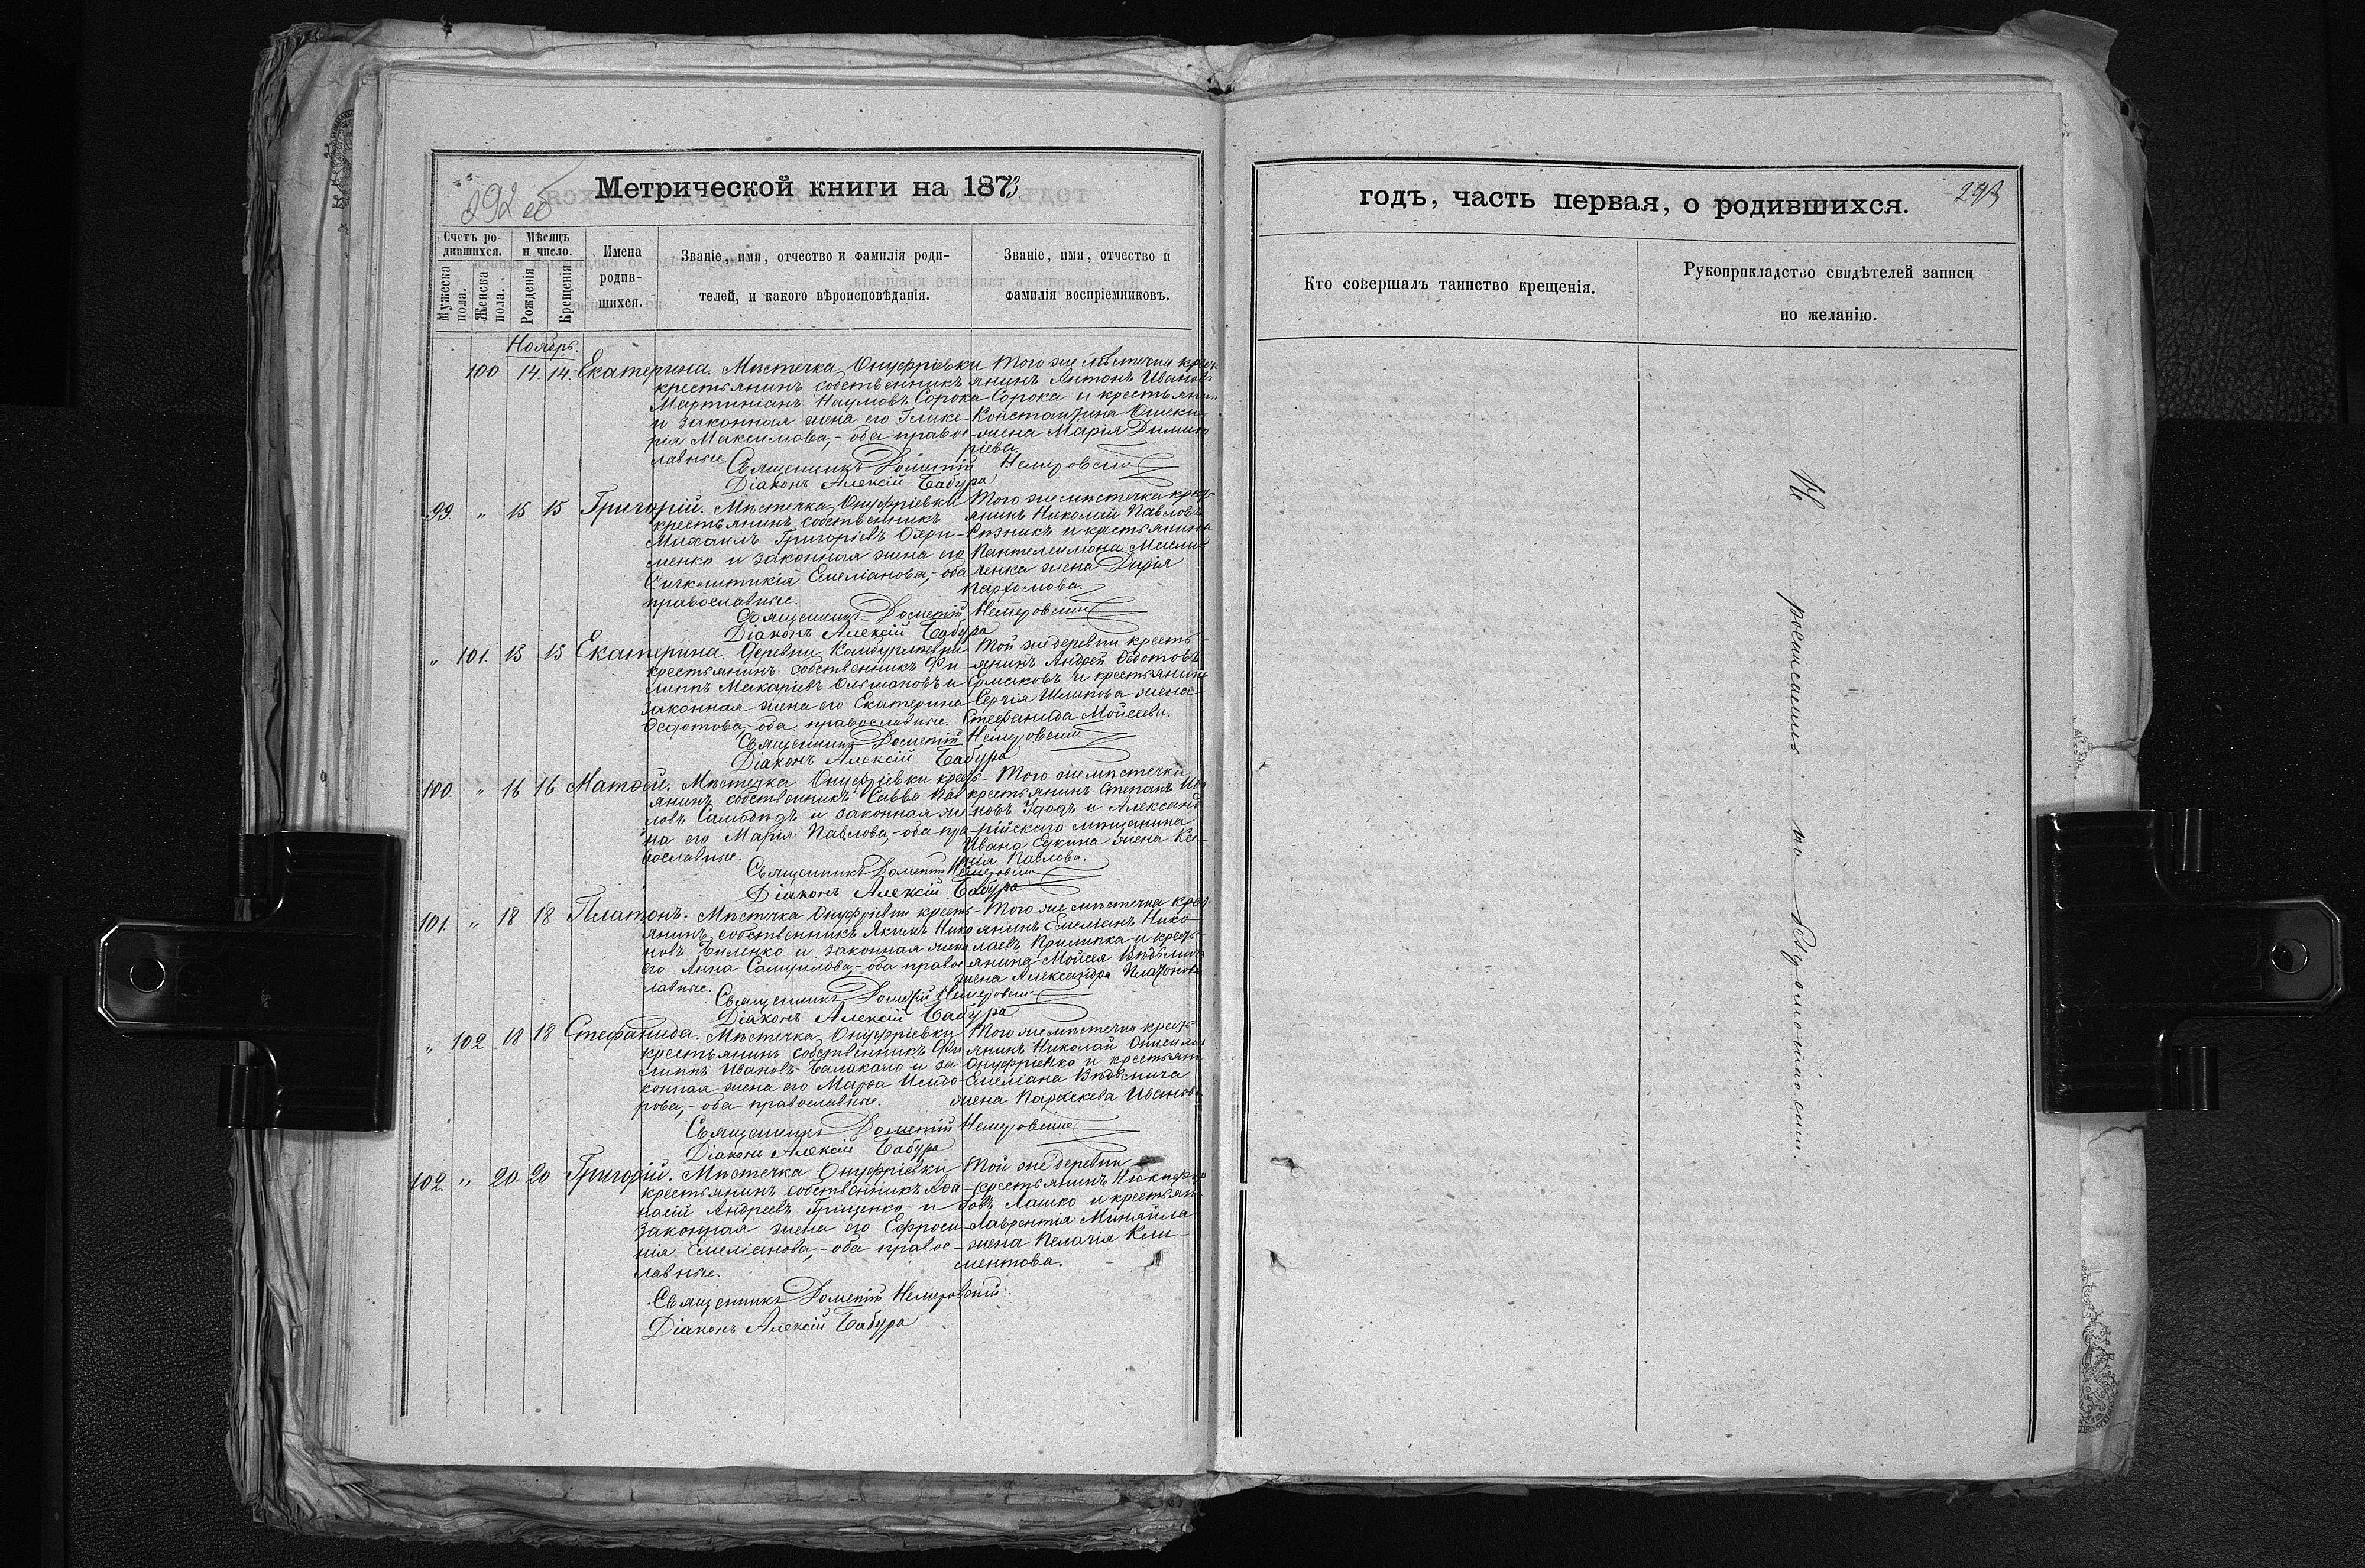 292 об
Метрической книги на 1873
Счетъ ро-
дившихся.
Мужеска
пола.
Женска
пола.
Мѣсяцъ
и число.
Рожденія
Крещенія
Имена
родив-
шихся.
Званіе, имя, отчество и фамилія роди-
телей, и какого вѣроисповѣданія.
Званіе, имя, отчество и
фамилія воспріемниковъ.
Ноябрь.
100 14. 14. Екатерина. Мѣстечка Онуфріевки
крестьянинъ собственникъ
Мартиніанъ Наумовъ Сорока
и законная жена его Глике-
рія Максимова,- оба правос-
лавные.
Того же мѣстечка крест-
янинъ Антонъ Иванов
Сорока и крестьянин
Константина
жена Марія Димит
ріева.
Священникъ Дометій Немеровскій
Діаконъ Алексій Бабура
99. " 15 15 Григорій. Мѣстечка Онуфріевки
крестьянинъ собственникъ
Михаилъ Григоріевъ
менко и законная жена его
Емеліанова,- оба
православные.
Того же мѣстечка крест
янинъ Николай Павловъ
Рѣзникъ и крестьянина
Пантелеимона
ченка жена Дарія
Пархомова.
Священникъ Дометій Немеровскій
Діаконъ Алексій Бабура
" 101. 15 15 Екатерина. Деревни Камбурлѣевки
крестьянинъ собственникъ Фи-
липпъ Макаріевъ и
законная жена его Екатерина
Федотова,- оба православные.
Той же деревни кресть-
янинъ Андрей Федотовъ
Ермаковъ и крестьянина
Сергія Шлыкова жена
Стефанида Моисеева.
Священникъ Дометій Немеровскій
Діаконъ Алексій Бабура
100. " 16 16 Матөей. Мѣстечка Онуфріевки крест-
янинъ собственникъ Савва Пав
ловъ Самодѣдъ и законная же
на его Марія Павлова,- оба пра-
вославные.
Того же мѣстечка
крестьянинъ Степанъ Ива
новъ Удодъ и Александ
рійскаго мѣщанина
Ивана Сукина жена Ксе-
нія Павлова.
Священникъ Дометій Немеровскій
Діаконъ Алексій Бабура
101. " 18 18 Платонъ. Мѣстечка Онуфріевки кресть-
янинъ собственникъ Якимъ Нико
новъ Биленко и законная жена
его Анна Самуилова,- оба правос
лавные.
Того же мѣстечка крест
янинъ Емеліанъ Нико-
лаевъ Прилипка и крест-
янина Моисея
жена Александра Платонова
Священникъ Дометій Немеровскій
Діаконъ Алексій Бабура
" 102 18 18 Стефанида. Мѣстечка Онуфріевки
крестьянинъ собственникъ Фи
липпъ Ивановъ Балакало и за
конная жена его Марѳа Исидо-
рова,- оба православные.
Того же мѣстечка крест-
янинъ Николай
Онуфріенко и крестьян
Емеліана
жена Параскева Иванова
Священникъ Дометій Немеровскій
Діаконъ Алексій Бабура
102. " 20 20 Григорій. Мѣстечка Онуфріевки
крестьянинъ собственникъ Аѳа-
насій Андреевъ Грищенко и
законная жена его Ефроси-
нія Емеліанова,- оба правос-
лавные.
Той же деревни
крестьянинъ Никифо
ровъ Лашко и крестьян
Лаврентія Миняйла
жена Пелагія Кли-
ментова.
Священникъ Дометій Немеровскій.
Діаконъ Алексій Бабура
годъ, часть первая, о родившихся.
293
Кто совершалъ таинство крещенія.
Рукоприкладство свидѣтелей записи
по желанію.
по безграмотности.